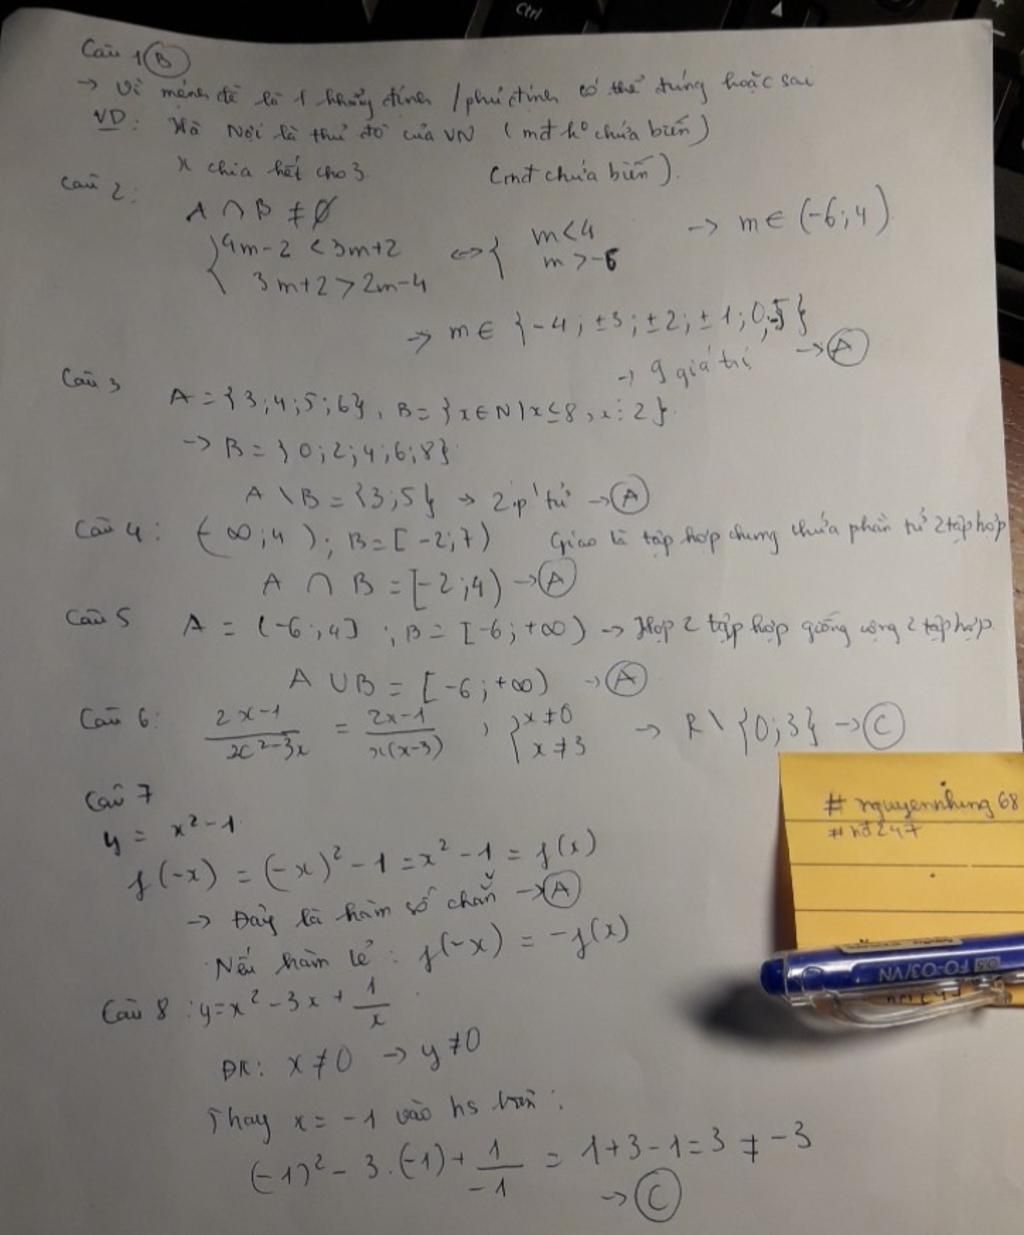 Ctrl
Câu 1 B
→ Vì mệnh đề là 1 khẳng định / phủ định có thể đúng hoặc sai
VD: Hà Nội là thủ đô của VN (mđ k° chứa biến)
x chia hết cho 3. (mđ chứa biến).
Câu 2:
A ∩ B ≠ ∅
{ 4m-2 < 3m+2 ⇔ { m<4 → m ∈ (-6; 4)
3m+2 > 2m-4 m > -6
→ m ∈ {-4; ±3; ±2; ±1; 0; -5}
→ 9 giá trị → A
Câu 3
A = {3; 4; 5; 6}, B = {x ∈ N | x ≤ 8, x ⋮ 2}.
→ B = {0; 2; 4; 6; 8}
A \ B = {3; 5} → 2 p' tử → A
Câu 4: (-∞; 4); B = [-2; 7) Giao là tập hợp chung chứa phần tử 2 tập hợp
A ∩ B = [-2; 4) → A
Câu 5 A = (-6; 4]; B = [-6; +∞) → Hợp 2 tập hợp giống cộng 2 tập hợp.
A ∪ B = [-6; +∞) → A
Câu 6: (2x-1)/(x²-3x) = (2x-1)/(x(x-3)), { x ≠ 0 x ≠ 3 → R \ {0; 3} → C
Câu 7
y = x² - 1
f(-x) = (-x)² - 1 = x² - 1 = f(x)
→ Đây là hàm số chẵn → A
Nếu hàm lẻ: f(-x) = -f(x)
Câu 8: y = x² - 3x + 1/x
ĐK: x ≠ 0 → y ≠ 0
Thay x = -1 vào hs trên:
(-1)² - 3.(-1) + 1/-1 = 1+3-1 = 3 ≠ -3
→ C
# nguyennhung68
# hđ247
FO-03/VN